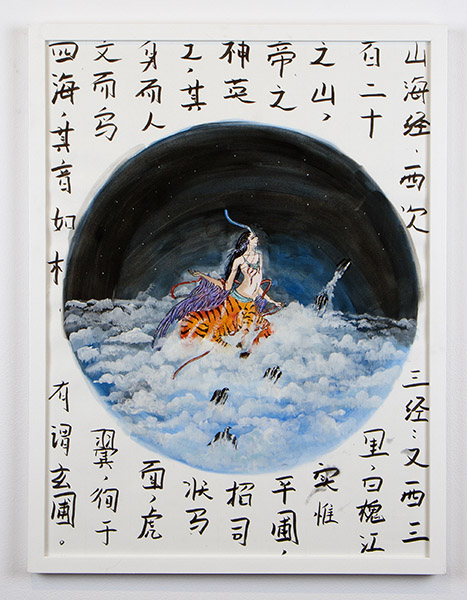 山海经、西次三经:又西三
百二十里,曰槐江
之山,实惟
帝之平圃,
神英招司
之,其状马
身而人面,虎
文而鸟翼,徇于
四海,其音如 有谓玄圃。